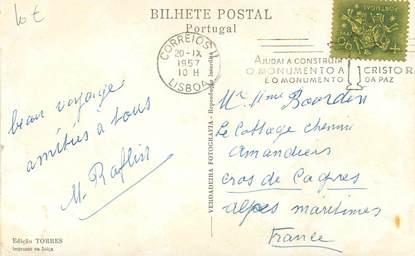 10€
BILHETE POSTAL
Portugal
CORREIOS
20-IX
1957
10 H
LISBOA
AJUDAI A CONSTRUIR
O MONUMENTO A CRISTO R
É O MONUMENTO DA PAZ
PORTUGAL
beau voyage
amitiés à tous
M.
Mr Mme Bourdin
Le Cottage chemin
amandiers
cros de Cagnes
alpes maritimes
France
VERDADEIRA FOTOGRAFIA - Reprodução interdita
Edição TORRES
Impresso na Suíça